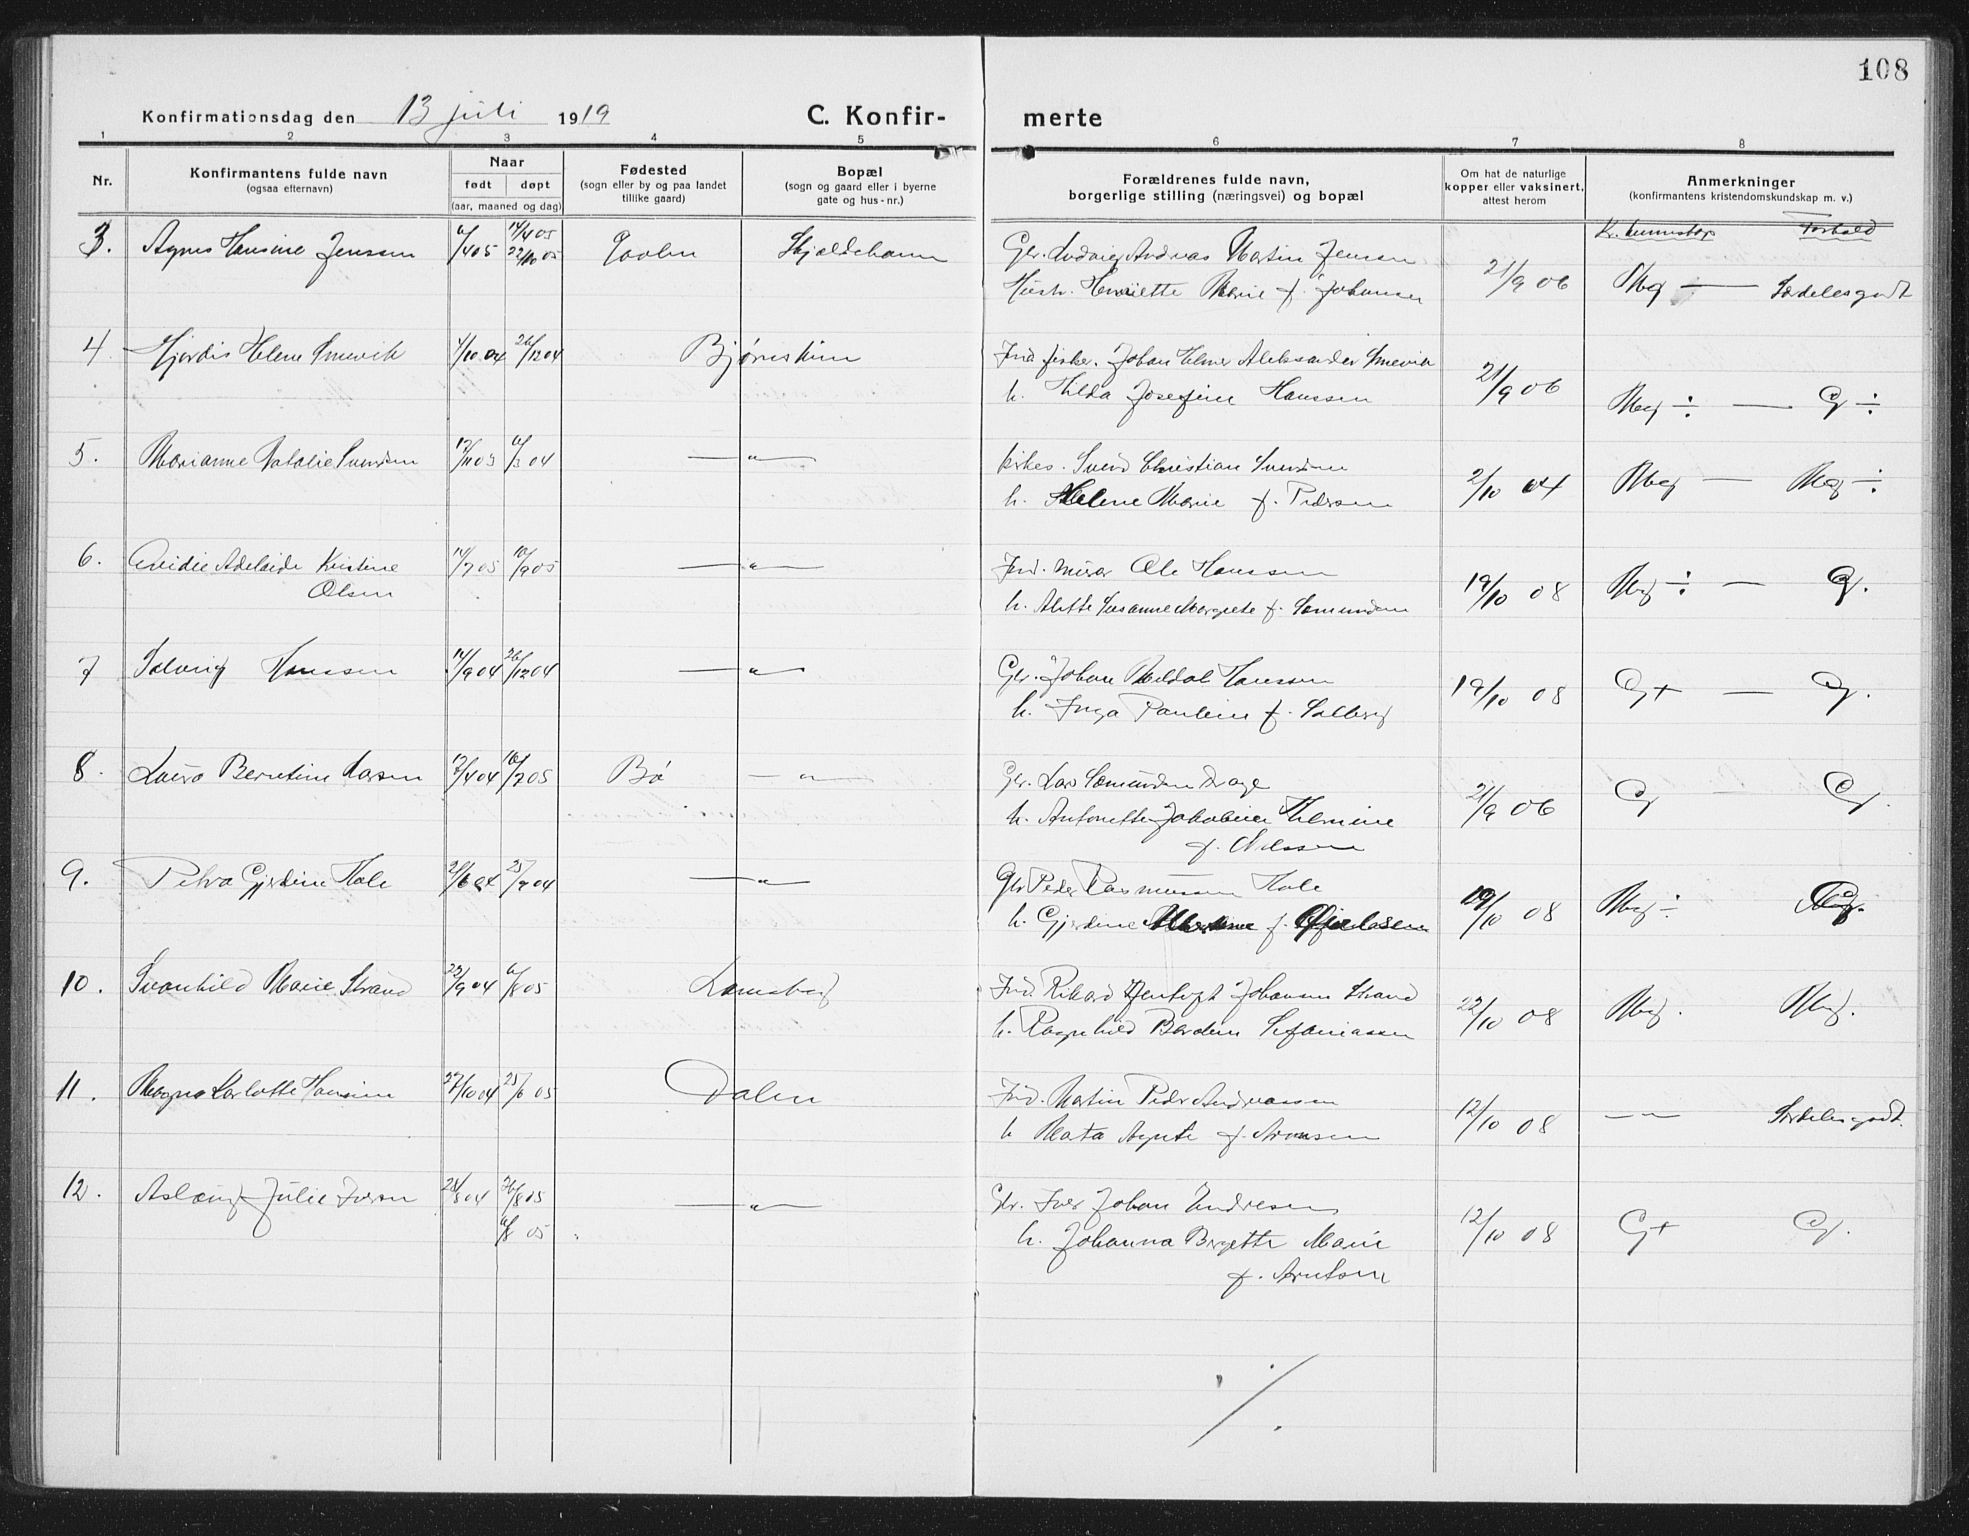 108
Konfirmationsdag den 13 juli 1919 C. Konfir- merte
1 2 3 4 5 6 7 8
Nr.
Konfirmantens fulde navn
(ogsaa efternavn)
Naar
født døpt
(aar, maaned og dag)
Fødested
(sogn eller by og paa landet
tillike gaard)
Bopæl
(sogn og gaard eller i byerne
gate og hus-nr.)
Forældrenes fulde navn,
borgerlige stilling (næringsvei) og bopæl
Om hat de naturlige
kopper eller vaksinert,
attest herom
Anmerkninger
(konfirmantens kristendomskundskap m. v.)
Kr. kunnskap Forhold
3. Agnes Hansine Jenssen 6/4 05 14/4 05 Skjeldehavn Gbr. Ludvig Andreas Martin Jensen
22/10 05
Hustr. Henriette Marie f. Johansen 21/9 06 Meg — Særdeles godt
4 Hjørdis Helene Smevik 1/10 04 26/12 04 Bjørnskin Ind. fisker. Johan Helmer Aleksander Smevik
h. Hilda Josefine Hanssen 21/9 06 Meg ÷ — G ÷
5. Marianne Natalie Svendsen 6/3 04 — " — Svend Christian Svendsen
h. Helene Marie f. Pedersen 2/10 04 Meg — Meg ÷
6. Ovidie Adelaide Kristine 14/7 05 10/9 05 — " — Ind. murer Ole Hanssen
Olsen
h. Alette Susanne Margrete f. Samundsen 19/10 08 Meg ÷ — G.
7 Solveig Hanssen 14/9 04 26/12 04 — " — Gbr. Johan Meldal Hanssen
h. Inga Pauline f. Solberg 19/10 08 G+ — G.
8. Laura Berntine Larsen 17/4 04 Bø — " — Gbr. Lars Samundsen Drage
h. Antonette Jakobine Helmine 21/9 06 G G.
f. Nilssen
9. Petra Gjertine Hole 25/7 04 — " — Gbr Peder Rasmussen Hole
h. Gjertine f. 19/10 08 Meg ÷
10. Svanhild Marie Strand 22/9 04 6/8 05 Ramsberg Ind. Rikard Johansen Strand
h. Ragnhild Bardine Sefaniassen 22/10 08 Meg. Meg.
11. Magna Karlotte Hansine 27/10 04 25/6 05 Dalen Ind. Martin Peder Andreassen
h Marta Agnete f. Aronsen 12/10 08 — " — Særdeles godt.
12. Aslaug Julie Iversen 28/8 04 26/8 05 — " — Gbr. Iver Johan Andresen
6/8 05
h. Johanna Bergette Marie 12/10 08 G+ G.
f. Arntsen